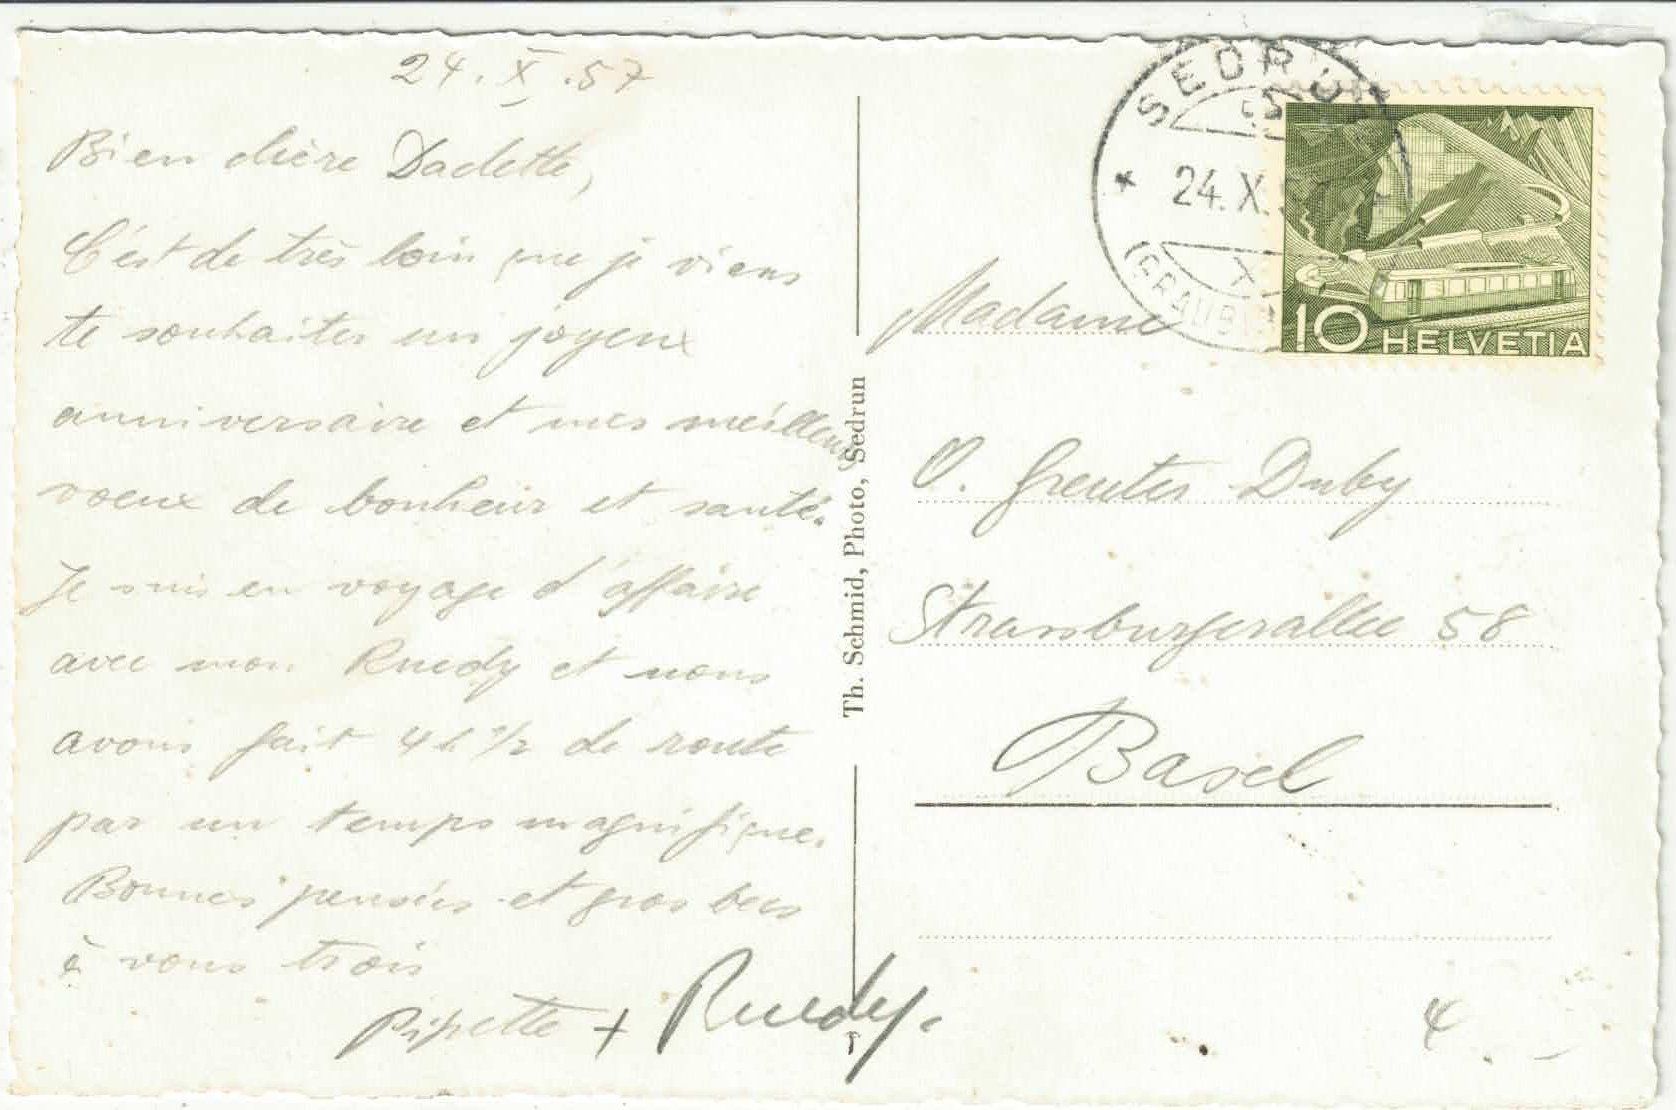 24.X.57
Bien chère Dadette,
C'est de très loin que je viens
te souhaiter un joyeux
anniversaire et mes meilleurs
voeux de bonheur et santé.
Je suis en voyage d'affaire
avec mon Ruedy et nous
avons fait 4 h ½ de route
par un temps magnifique.
Bonnes pensées et gros becs
à vous trois
Pipette + Ruedy.
Th. Schmid, Photo, Sedrun
SEDRU
24.X.
(GRAUB
10 HELVETIA
Madame
O. Greuter Duby
Strassburgerallee 58
Basel
4